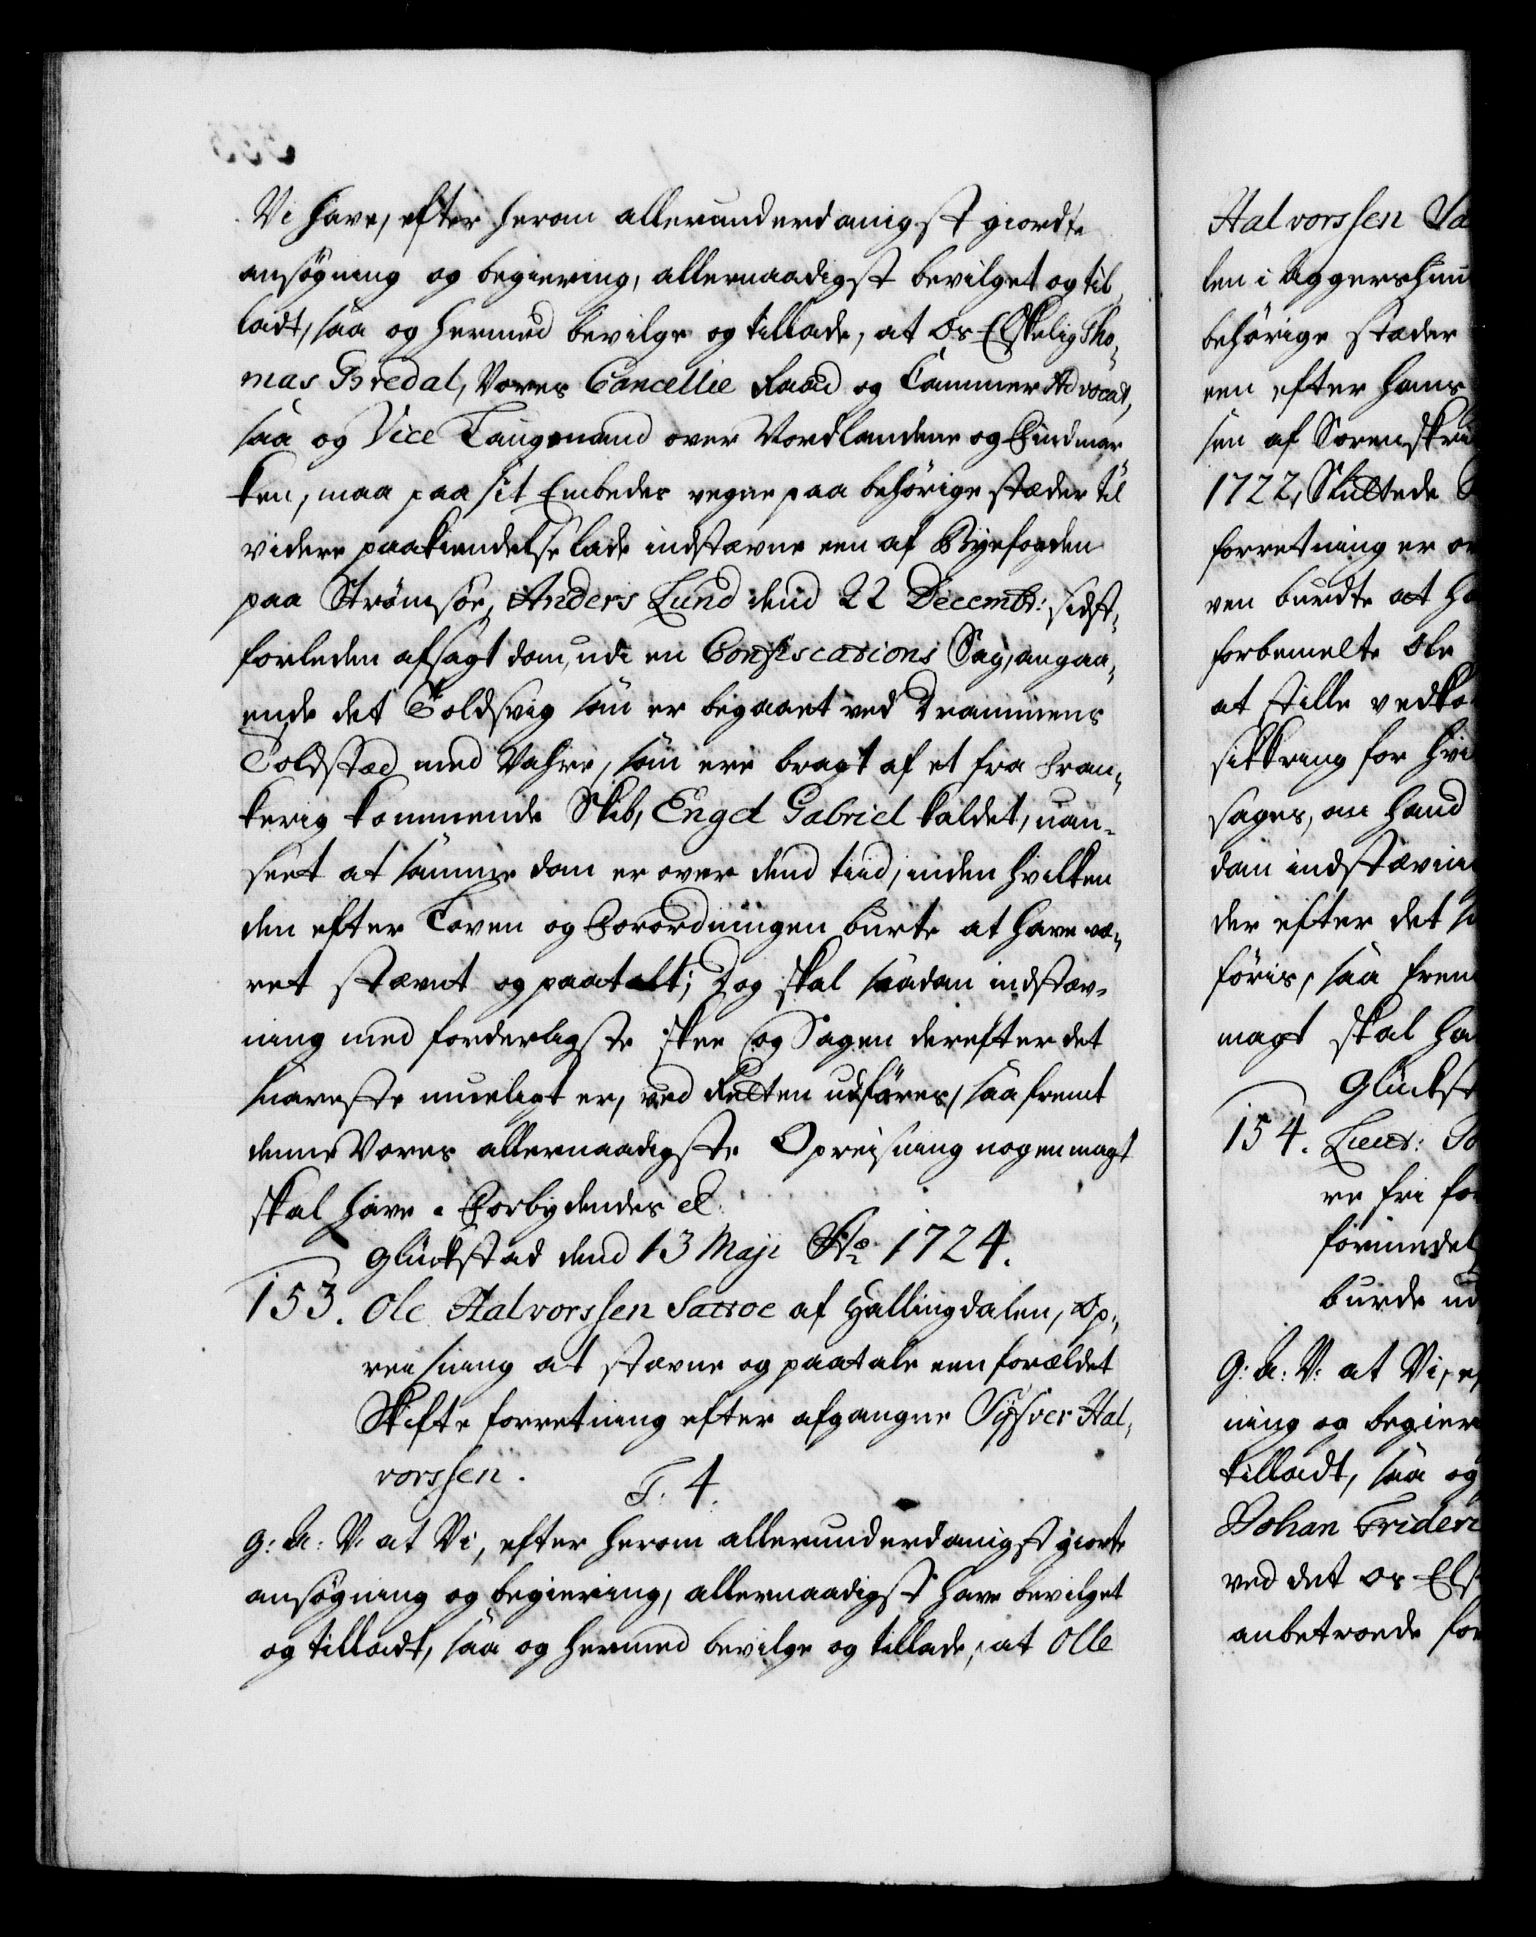 Vi have, efter herom allerunderdanigst giordte
ansøgning og begiering, allernaadigst bevilget og til,
ladt, saa og hermed bevilge og tillade, at Os Elskelig Tho,
mas Bredal, Vores Cancellie Raad og Cammer Advocat,
saa og Vice Laugmand over Nordlandene og Findmar,
ken, maa paa sit Embedes vegne paa behörige stæder til
videre paakiendelse lade indstævne een af Byefogden
paa Strömsöe, Anders Lund dend 22 Decembr: sidst,
forleden afsagt dom, udi en Confiscations Sag, angaa,
ende det Toldsvig som er begaaet ved Drammens
Toldsted med Vahre, som ere bragt af et fra Fran,
kerig kommende Skib, Engel Gabriel kaldet, uan,
seet at samme dom er over dend tiid, inden hvilken
den efter Loven og Forordningen burte at have væ,
ret stævnt og paatalt; Dog skal saadan indstæv,
ning med forderligste skee og Sagen derefter det
snareste mueligt er, ved Retten udföres, saafremt
denne Vores allernaadigste Opreisning nogen magt
skal have. Forbydendes etc.
Glückstad dend 13 Maji Ao 1724.
153. Ole Halvorssen Sattoe af Hallingdalen, Op,
reisning at stævne og paatale een forældet
Skifte forretning efter afgangne Sysver Hal,
vorssen.
T. 4.
G: A: V: at Vi, efter herom allerunderdanigst giorte
ansøgning og begiering, allernaadigst have bevilget
og tilladt, saa og hermed bevilge og tillade, at Olle
Halvorssen Sa
len i Aggershuu
behörige stæder
een efter hans
sen af Sorenskri
1722, Sluttede
forretning er o
ven burdte at ha
forbemelte Ole
at stille vedko
sikkring for hvi
sages, om hand
dom indstævne
der efter det s
föris, saa frem
magt skal ha
Glückst
154. Lieut: To
re fri for
formindel
burde ud
G: A: V: at Vi, e
ning og begier
tilladt, saa og
Johan Frideri
ved det Os Els
anbetroede for